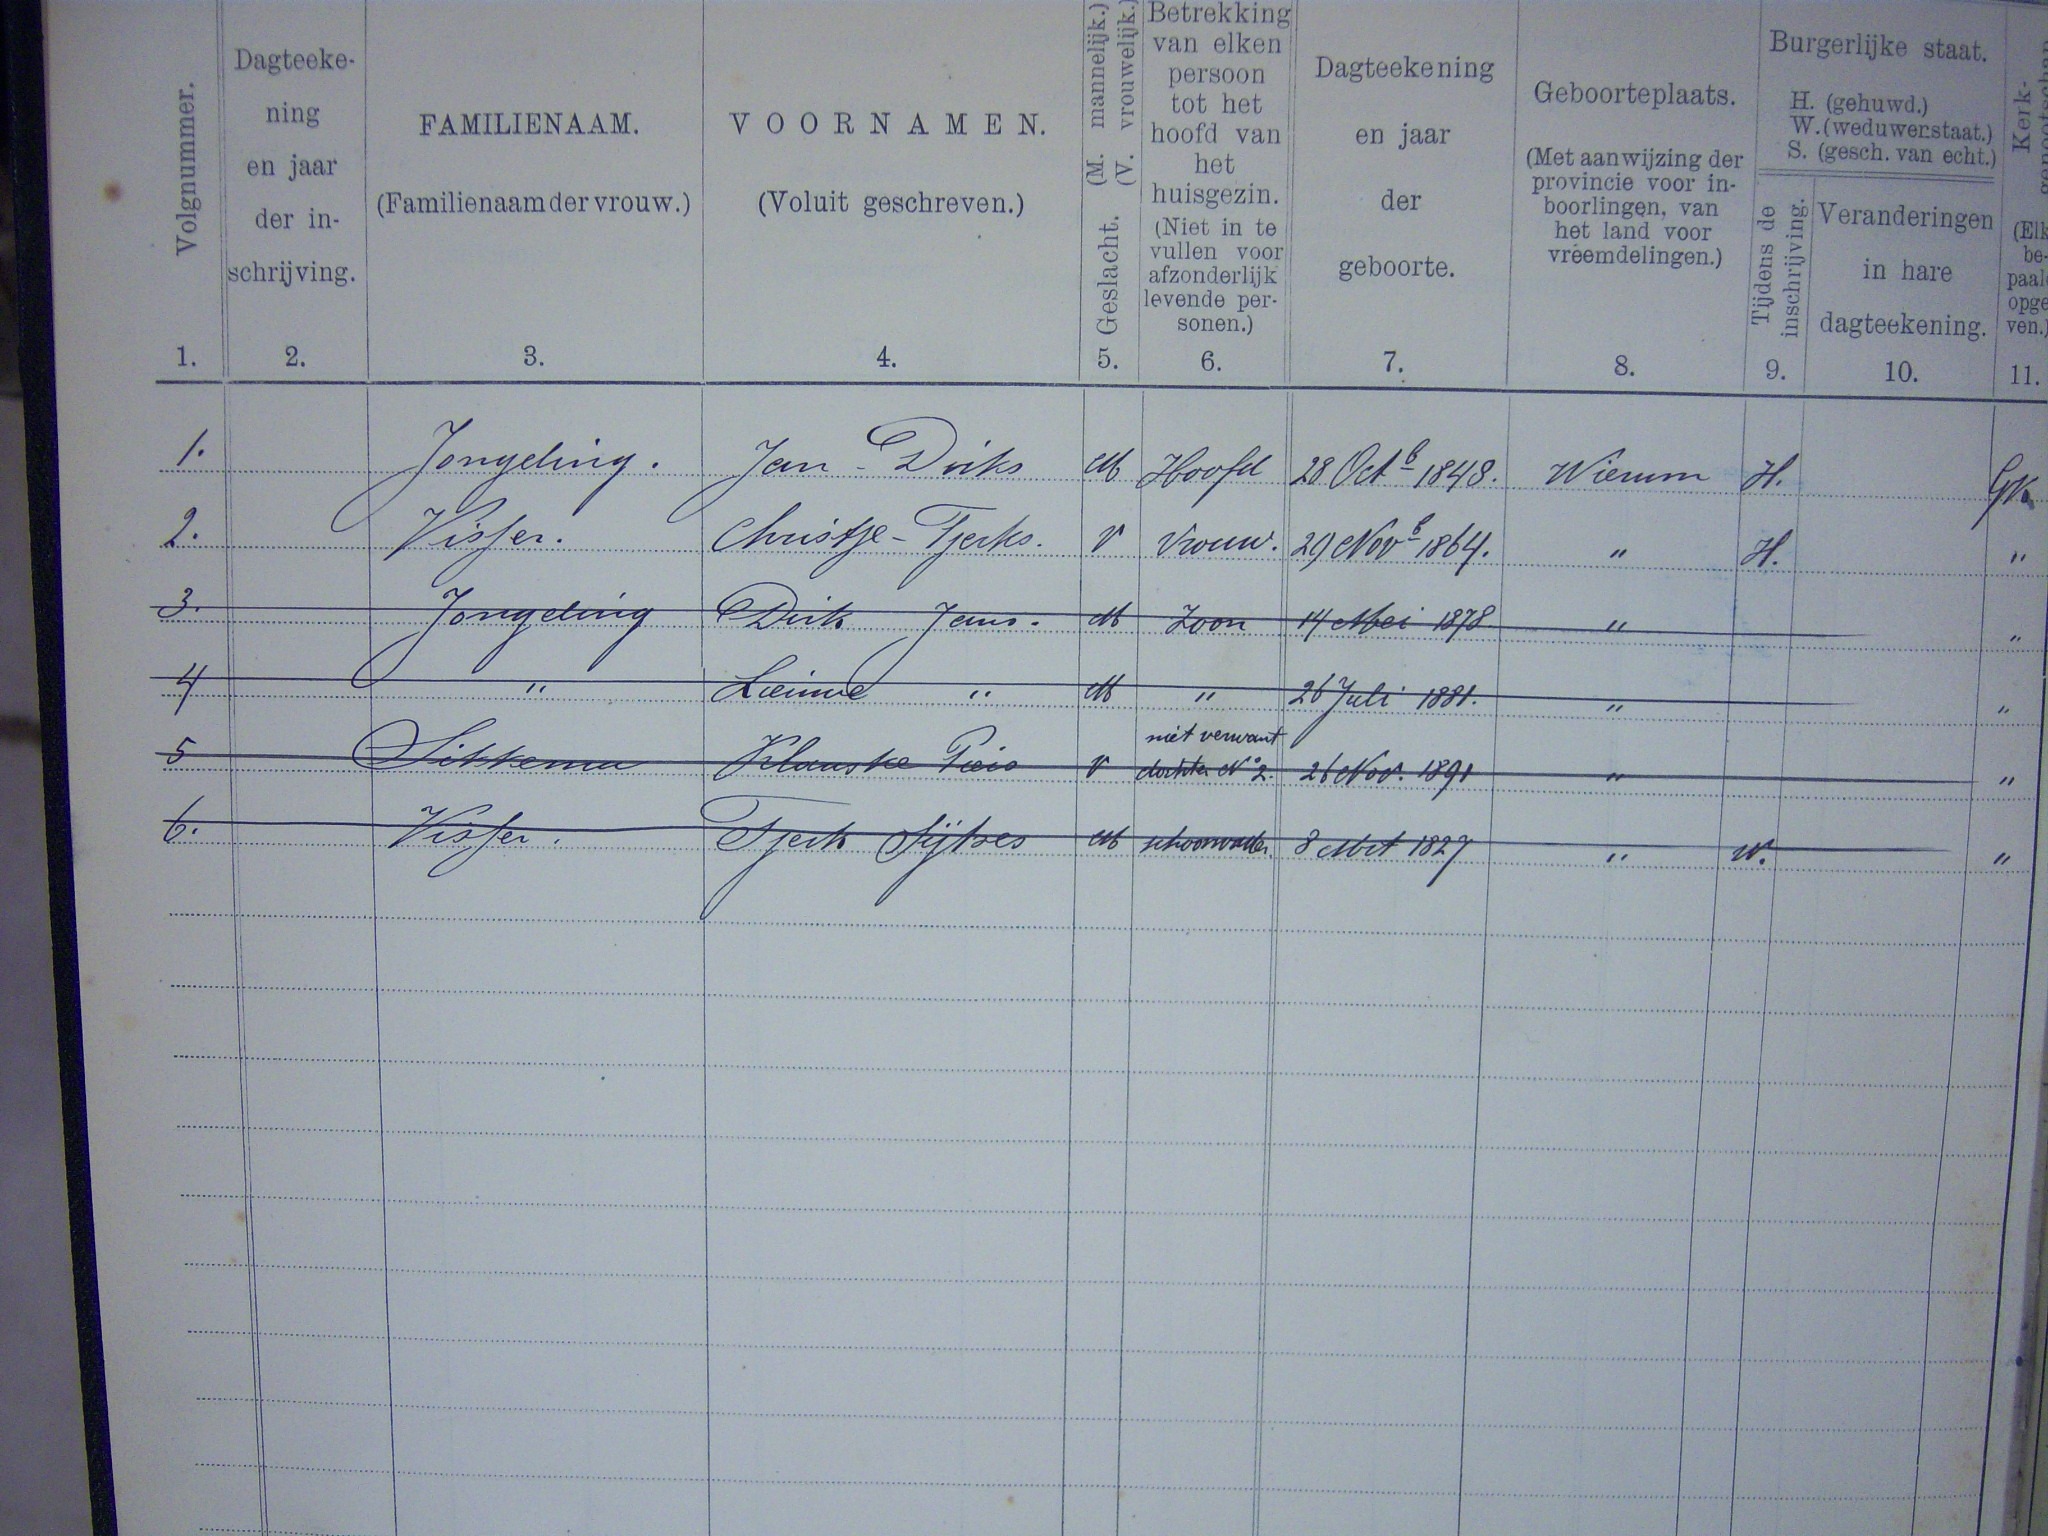 Volgnummer.
1.
Dagteeke-
ning
en jaar
der in-
schrijving.
2.
FAMILIENAAM.
(Familienaam der vrouw.)
3.
VOORNAMEN.
(Voluit geschreven.)
4.
Geslacht. (M. mannelijk.)
(V. vrouwelijk.)
5.
Betrekking
van elken
persoon
tot het
hoofd van
het
huisgezin.
(Niet in te
vullen voor
afzonderlijk
levende per-
sonen.)
6.
Dagteekening
en jaar
der
geboorte.
7.
Geboorteplaats.
(Met aanwijzing der
provincie voor in-
boorlingen, van
het land voor
vreemdelingen.)
8.
Burgerlijke staat.
H. (gehuwd.)
W. (weduwenstaat.)
S. (gesch. van echt.)
Tijdens de
inschrijving.
9.
Veranderingen
in hare
dagteekening.
10.
Kerk-
genootschap
(Elk
be-
paald
opge
ven.)
11.
1. Jongeling. Jan - Dirks M Hoofd 28 Octb 1848. Wierum H.
2. Visser. Christje - Tjerks. V Vrouw. 29 Novb 1864. " H. "
3. Jongeling Dirk Jans. M Zoon 14 Mei 1878 " "
4 " Lieuwe " M " 26 Juli 1881. " "
niet verwant
5 Sikkema Klaaske Pieis V dochter No 2. 26 Nov. 1891 " "
6. Visser. Tjerk Sijtzes M schoonvader. 8 Mrt 1827 " W. "